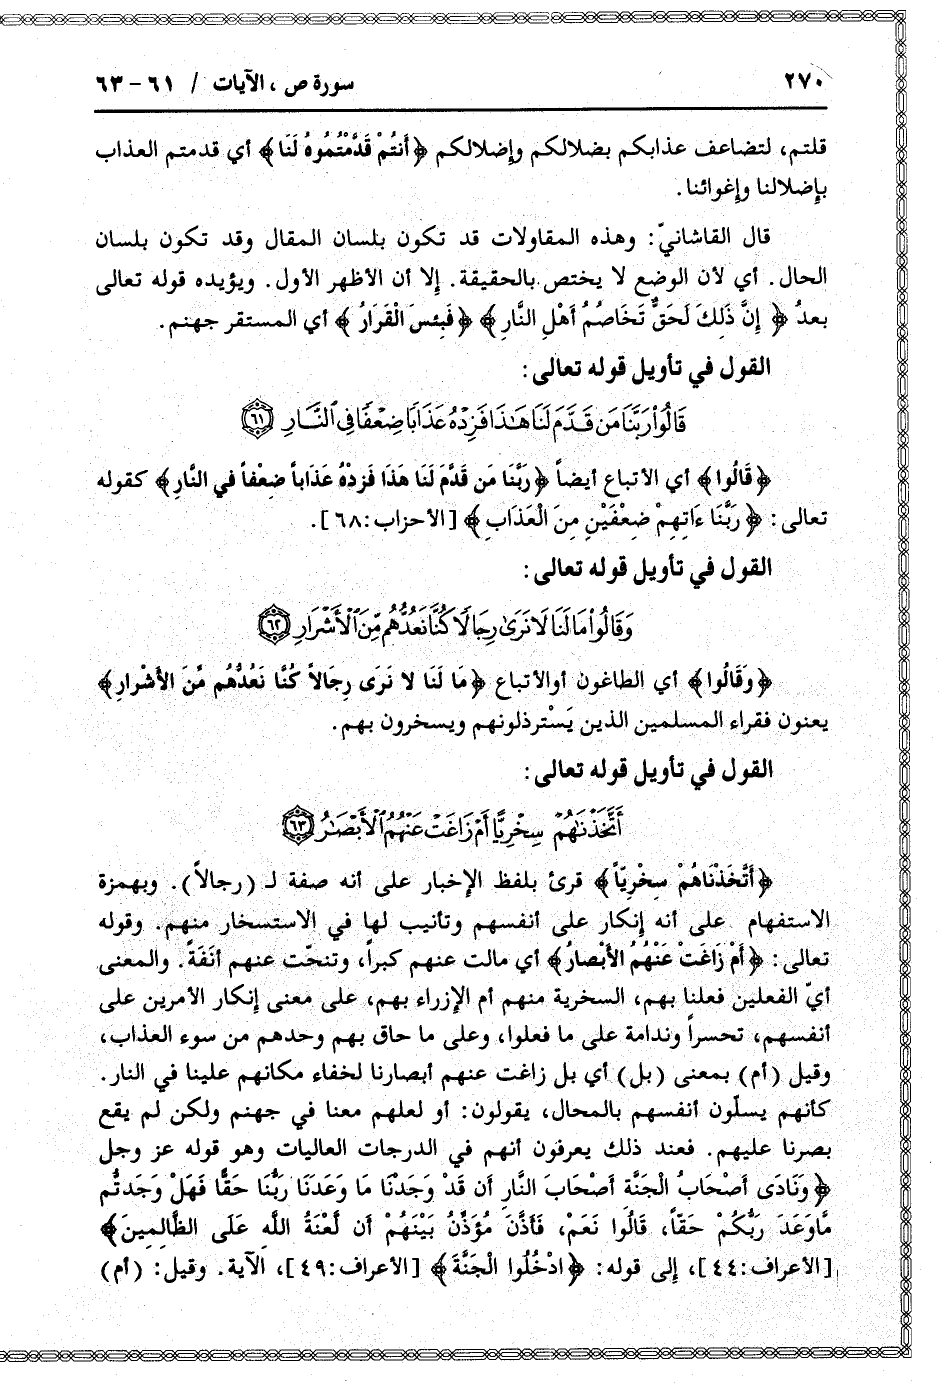 ٢٧٠
سورة ص ، الآيات / ٦١ - ٦٣
قلتم، لتضاعف عذابكم بضلالكم وإضلالكم ﴿أَنتُمْ قَدَّمْتُمُوهُ لَنَا﴾ أي قدمتم العذاب
بإضلالنا وإغوائنا.
قال القاشانيّ: وهذه المقاولات قد تكون بلسان المقال وقد تكون بلسان
الحال. أي لأن الوضع لا يختص بالحقيقة. إلا أن الأظهر الأول. ويؤيده قوله تعالى
بعدُ ﴿إِنَّ ذَلِكَ لَحَقٌّ تَخَاصُمُ أَهْلِ النَّارِ﴾ ﴿فَبِئسَ الْقَرَارُ﴾ أي المستقر جهنم.
القول في تأويل قوله تعالى:
قَالُواْ رَبَّنَا مَن قَدَّمَ لَنَا هَٰذَا فَزِدْهُ عَذَابًا ضِعْفًا فِى ٱلنَّارِ ٦١
﴿قَالُوا﴾ أي الأتباع أيضاً ﴿رَبَّنَا مَن قَدَّمَ لَنَا هَذَا فَزِدْهُ عَذَاباً ضِعْفاً في النَّارِ﴾ كقوله
تعالى: ﴿رَبَّنَا ءَاتِهِمْ ضِعْفَيْنِ مِنَ الْعَذَابِ﴾ [الأحزاب:٦٨].
القول في تأويل قوله تعالى:
وَقَالُواْ مَا لَنَا لَا نَرَىٰ رِجَالًا كُنَّا نَعُدُّهُم مِّنَ ٱلْأَشْرَارِ ٦٢
﴿وَقَالُوا﴾ أي الطاغون أوالأتباع ﴿مَا لَنَا لا نَرَى رِجَالاً كُنَّا نَعُدُّهُم مِّنَ الأَشْرارِ﴾
يعنون فقراء المسلمين الذين يَسْترذلونهم ويسخرون بهم.
القول في تأويل قوله تعالى:
أَتَّخَذْنَٰهُمْ سِخْرِيًّا أَمْ زَاغَتْ عَنْهُمُ ٱلْأَبْصَٰرُ ٦٣
﴿أَتَّخَذْنَاهُمْ سِخْرِيّاً﴾ قرئ بلفظ الإخبار على أنه صفة لـ (رجالاً). وبهمزة
الاستفهام على أنه إنكار على أنفسهم وتأنيب لها في الاستسخار منهم. وقوله
تعالى: ﴿أَمْ زَاغَتْ عَنْهُمُ الأَبْصارُ﴾ أي مالت عنهم كبراً، وتنحّت عنهم أنَفَةً. والمعنى
أيّ الفعلين فعلنا بهم، السخرية منهم أم الإزراء بهم، على معنى إنكار الأمرين على
أنفسهم، تحسراً وندامة على ما فعلوا، وعلى ما حاق بهم وحدهم من سوء العذاب،
وقيل (أم) بمعنى (بل) أي بل زاغت عنهم أبصارنا لخفاء مكانهم علينا في النار.
كأنهم يسلّون أنفسهم بالمحال، يقولون: أو لعلهم معنا في جهنم ولكن لم يقع
بصرنا عليهم. فعند ذلك يعرفون أنهم في الدرجات العاليات وهو قوله عز وجل
﴿وَنَادَى أَصْحَابُ الْجَنَّةِ أَصْحَابَ النَّارِ أَن قَدْ وَجَدْنَا مَا وَعَدَنَا رَبُّنَا حَقًّا فَهَلْ وَجَدتُّم
مَّاوَعَدَ رَبُّكُمْ حَقّاً، قَالُوا نَعَمْ، فَأَذَّنَ مُؤَذِّنٌ بَيْنَهُمْ أَن لَّعْنَةُ اللَّهِ عَلَى الظَّالِمِينَ﴾
[الأعراف:٤٤]، إلى قوله: ﴿ادْخُلُوا الْجَنَّةَ﴾ [الأعراف:٤٩]، الآية. وقيل: (أم)